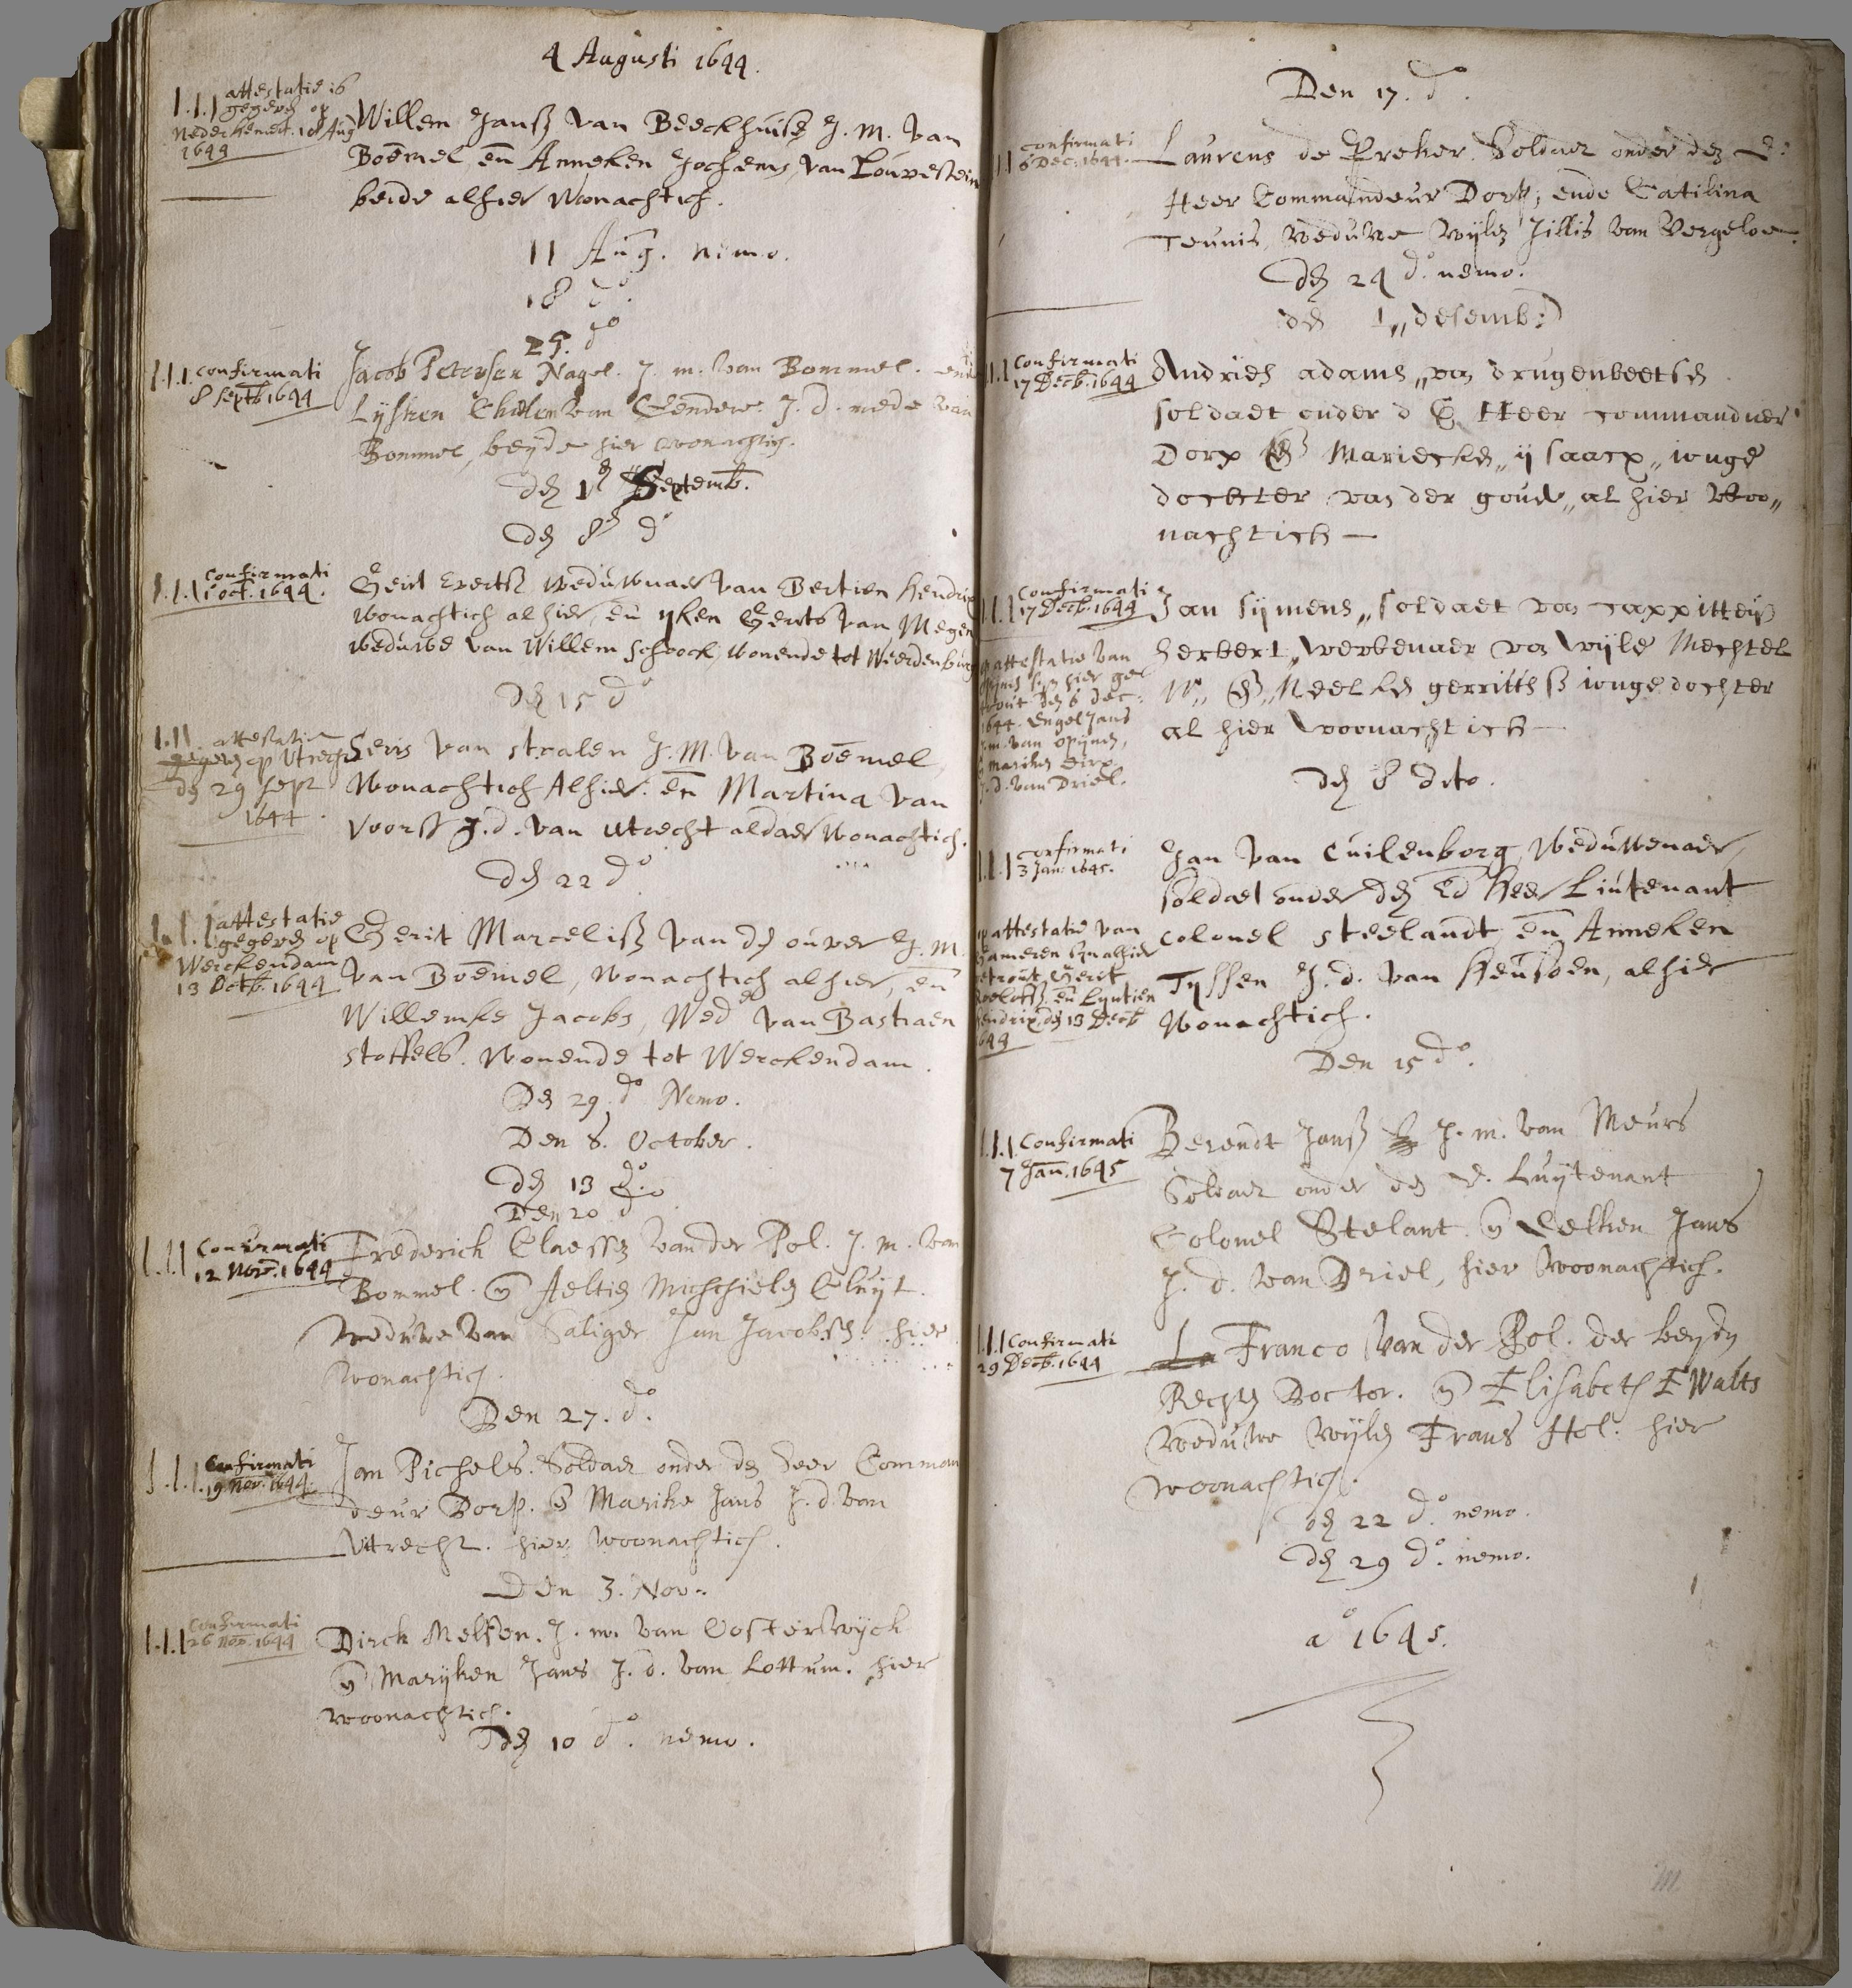 4 Augusti 1644.
1.1.1 attestatie is
gegeven op
Nederhemert. 18 Aug
1644
Willem Janß van Beeckhuisē J. M. van
Boēmel, en̄ Anneken Jochems, van Louvestein
beide alhier Wonachtich.
11 Aug. nemo.
18 do.
25. do
1.1.1. confirmati
8 septb 1644
Jacob Petersen Nagel. J. m. van Bommel. ende
Lijsken van J. d. mede van
Bommel, beyde hier woonachtig.
den 1en Septemb.
den 8en do
1.1.1 confirmati
1 oct. 1644.
Gerit Evertß weduwnaer van Bertien Hendrix
wonachtich alhier, en̄ yken Geerts van Megen
weduwe van Willem Schoock, wonende tot Weerdenburg
Den 15 do
1.11. attestatie
gegeven op Utrecht
den 29 sept
1644.
Seris van stralen J. M. van Boēmel,
Wonachtich Alhier. en̄ Martina van
Voorst J. d. van utrecht aldaer Wonachtich.
den 22 do.
1.1.1 attestatie
gegeven op
Werckendam
13 Octb. 1644
Gerit Marcelisß van den ouver J. M.
van Boēmel, Wonachtich alhier, en̄
Willemke Jacobs, Wed van Bastiaen
stoffels. Wonende tot Werckendam.
Den 29. do Nemo.
Den 8. October.
den 13 do
Den 20 d
1.1.1 Confirmati
12 Nov. 1644
Frederich Claessen van der Pol. J. m. van
Bommel. en Aeltien Michhielß Cluyt.
weduwe van Saliger Jan Jacobsen. hier
wonachtich.
Den 27. do.
1.1.1. Confirmati
19 Nov. 1644.
Jan Pichels. Soldaet onder den Heer Comman
deur Dorp. en Marike Jans J. d. van
Uttrecht. hier woonachtich.
Den 3. Nov.
1.1.1 Confirmati
26 Nov. 1644
Dirck Melsen. J. m. van Oosterwyck
en Maryken Jans J. d. van Lottum. hier
woonachtich.
den 10 do. nemo.
Den 17. do.
1.1 confirmati
6 Dec. 1644.
Laurens de Soldaet onder den E.
Heer Commandeur Dorp; ende Catilina
Teunis, weduwe wylen Jillis van Vergeloe.
den 24 do. nemo.
den 1,, desemb:
1.1.1 Confirmati
17 Decb. 1644
Andries adams,, van drugenbeetsen
soldaet onder d E Heer commanduer
Dorp en Mariecken,, ysaacx,, ionge
dochter van der goude,, al hier Woo,,
nachtich —
1.1.1 Confirmati
17 Decb. 1644
Jan symens,, soldaet van cappitteijn
herbert,, wevbenaer van wijle Mechtel
W,, en,, Neelken gerrittsß ionge dochter
al hier Woonachtich —
op attestatie van
opijnen syn hier ge
trout den 6 dec.
1644. Engel Jans
J. m. van Opijnen,
en Mariken Dirx
J. d. van Driel.
den 8 dito.
1.1.1 confirmati
3 Jan: 1645.
Jan van Cuilenborg, Weduwenaer,
soldaet onder den Ed Heer Liutenant
colonel steelandt, en̄ Anneken
Tyssen J. d. van Heusden, alhier
Wonachtich.
op attestatie van
Gameren syn alhier
getrout, Gerit
Roelofß en̄ Lyntien
Hendrix, den 13 Decb
1644
Den 15 do.
1.1.1. Confirmati
7 Jan. 1645
Berendt Janß J. m. van Meurs
Soldaet onder den E. Luytenant
Colonel Stelant. en Eelken Jans
J. d. van Driel, hier woonachtich.
1.1.1 Confirmati
29 Decb. 1644
Franco van der Pol. der beyden
Rechten Doctor. en Elisabeth EWalts
weduwe wylen Frans Hol. hier
woonachtich.
den 22 do. nemo.
den 29 do. nemo.
ao 1645.